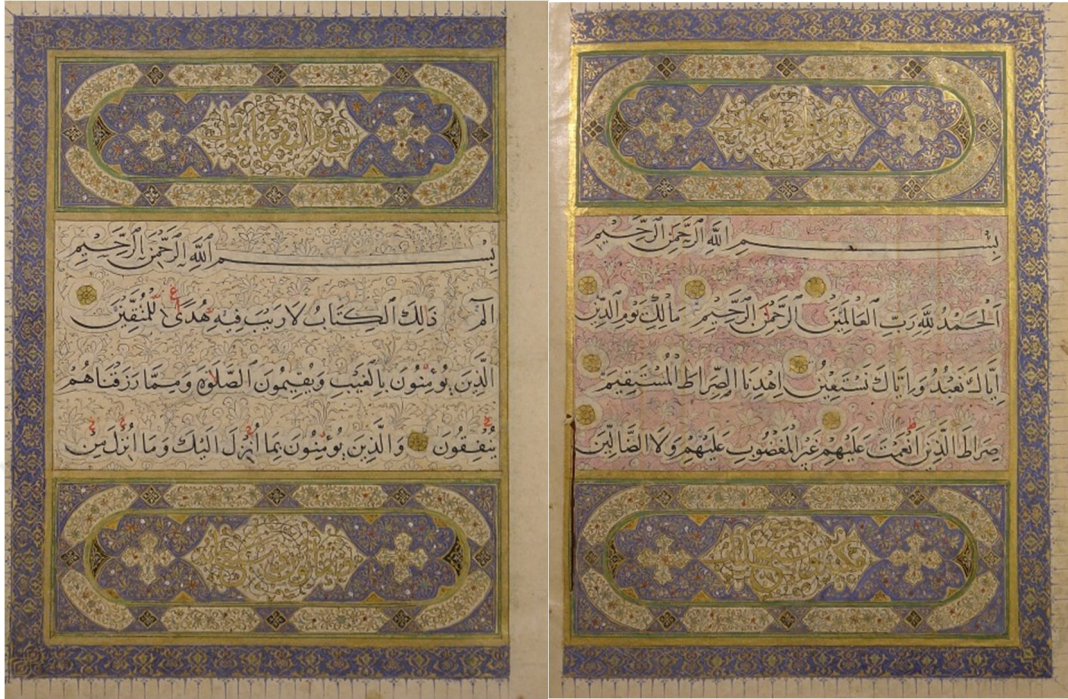 بِسْمِ اللهِ الرَّحْمٰنِ الرَّحِيْمِ
اَلْحَمْدُ لِلّٰهِ رَبِّ الْعَالَمِيْنَ الرَّحْمٰنِ الرَّحِيْمِ مَالِكِ يَوْمِ الدِّيْنِ
اِيَّاكَ نَعْبُدُ وَاِيَّاكَ نَسْتَعِيْنُ اِهْدِنَا الصِّرَاطَ الْمُسْتَقِيْمَ
صِرَاطَ الَّذِيْنَ اَنْعَمْتَ عَلَيْهِمْ غَيْرِ الْمَغْضُوْبِ عَلَيْهِمْ وَلَا الضَّالِّيْنَ
بِسْمِ اللهِ الرَّحْمٰنِ الرَّحِيْمِ
الٓمٓ ذٰلِكَ الْكِتَابُ لَا رَيْبَ فِيْهِ هُدًى لِلْمُتَّقِيْنَ
الَّذِيْنَ يُؤْمِنُوْنَ بِالْغَيْبِ وَيُقِيْمُوْنَ الصَّلٰوةَ وَمِمَّا رَزَقْنَاهُمْ
يُنْفِقُوْنَ وَالَّذِيْنَ يُؤْمِنُوْنَ بِمَا اُنْزِلَ اِلَيْكَ وَمَا اُنْزِلَ مِنْ